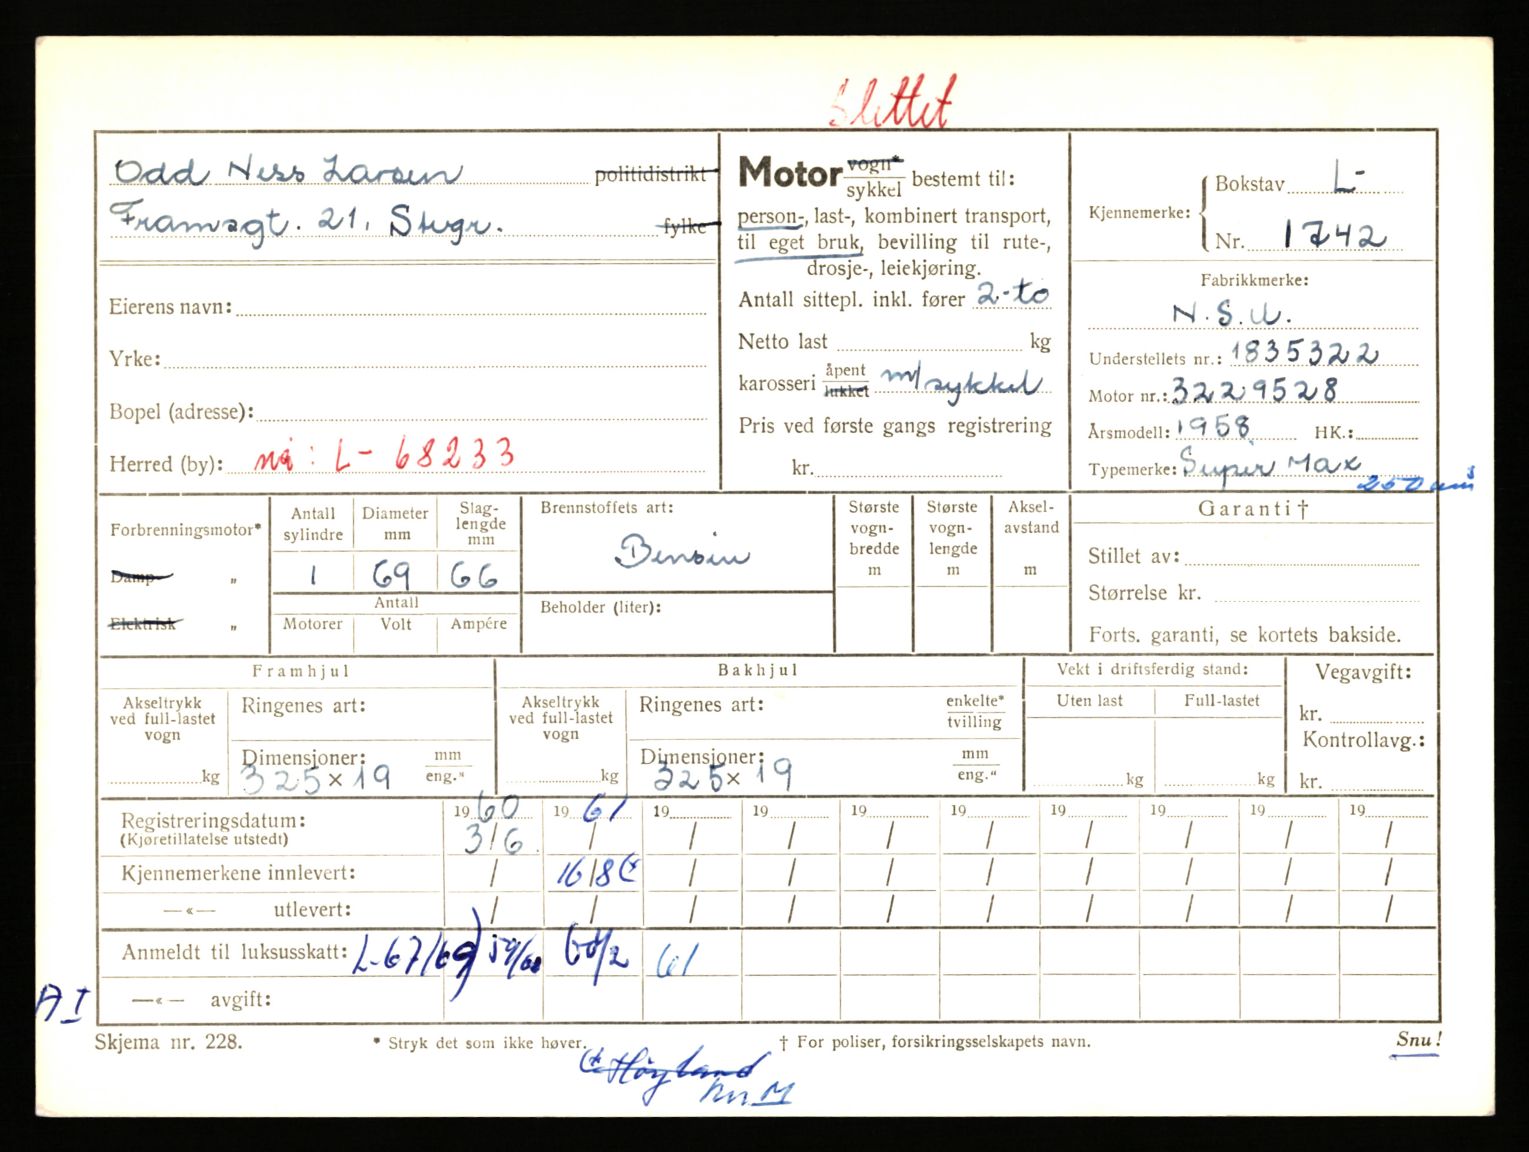 Slettet
Odd Ness Larsen politidistrikt
Framsgt. 21, Svgr. fylke
Eierens navn:
Yrke:
Bopel (adresse):
Herred (by): nå: L- 68233
Motor vogn* sykkel bestemt til:
person-, last-, kombinert transport,
til eget bruk, bevilling til rute-,
drosje-, leiekjøring.
Antall sittepl. inkl. fører 2-to
Netto last kg
karosseri åpent lukket m/sykkel
Pris ved første gangs registrering
kr.
Kjennemerke: Bokstav L-
Nr. 1742
Fabrikkmerke:
N.S.U.
Understellets nr.: 1835322
Motor nr.: 3229528
Årsmodell: 1958 HK.:
Typemerke: Super Max
250 cm³
Forbrenningsmotor*
Damp- "
Elektrisk "
Antall sylindre Diameter mm Slag-lengde mm
1 69 66
Antall
Motorer Volt Ampére
Brennstoffets art:
Bensin
Beholder (liter):
Største vogn-bredde m
Største vogn-lengde m
Aksel-avstand m
Garanti †
Stillet av:
Størrelse kr.
Forts. garanti, se kortets bakside.
Framhjul
Akseltrykk ved full-lastet vogn kg
Ringenes art:
Dimensjoner: mm eng.*
325 x 19
Bakhjul
Akseltrykk ved full-lastet vogn kg
Ringenes art: enkelte* tvilling
Dimensjoner: mm eng.*
325 x 19
Vekt i driftsferdig stand:
Uten last Full-lastet
kg kg
Vegavgift:
kr.
Kontrollavg.:
kr.
1960 1961 19 19 19 19 19 19 19 19
Registreringsdatum: 3/6 / / / / / / / / /
(Kjøretillatelse utstedt)
Kjennemerkene innlevert: / 16/8 (* / / / / / / / /
—«— utlevert: / / / / / / / / / /
Anmeldt til luksusskatt: L-67169) 59/60 60/2 61
—«— avgift:
A I
Skjema nr. 228.
* Stryk det som ikke høver.
† For poliser, forsikringsselskapets navn.
Snu!
(* Høyland